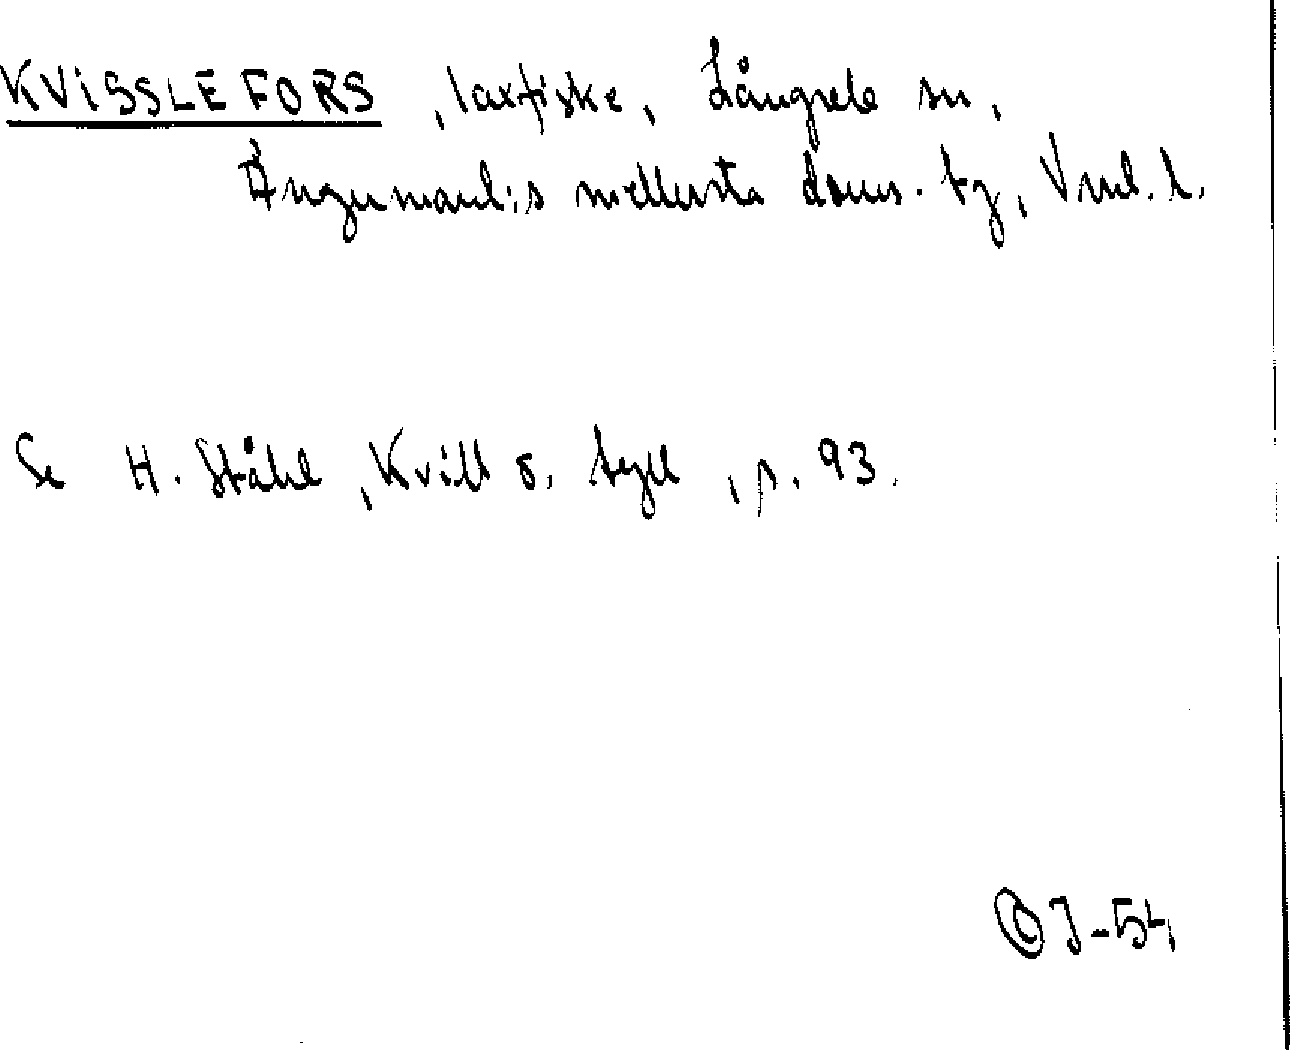 KVISSLEFORS, laxfiske, Långsele sn,
Ångermanl:s mellersta doms. tg, Vnl. l.
Se H. Ståhl, Kvill o. tyll, s. 93.
J-54